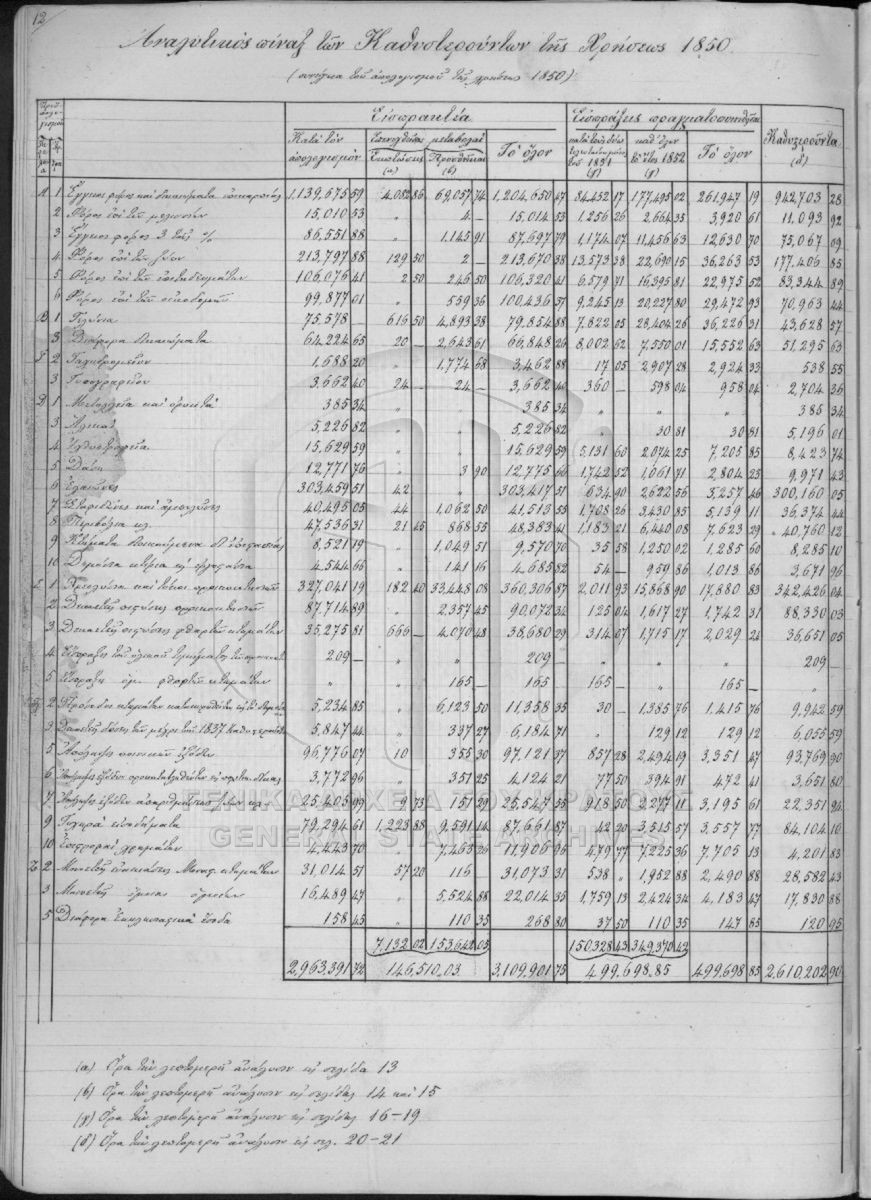 12
Ἀναλυτικὸς πίναξ τῶν Καθυστερούντων τῆς Χρήσεως 1850.
(συνέχεια τοῦ ἀπολογισμοῦ τῆς χρήσεως 1850)
Εἰσπρακτέα Εἰσπράξεις πραγματοποιηθεῖσαι Καθυστεροῦντα (δ)
Κατὰ τὸν ἀπολογισμόν Ἐπενεχθεῖσαι μεταβολαί Τὸ ὅλον τοῦ 1851 (γ) 1852 (γ) Τὸ ὅλον
Ἐκπτώσεις (α) Προσθῆκαι (β)
Α 1 Ἔγγειος φόρος καὶ δικαιώματα ἐπικαρπίας 1,139,675 59 4,082 86 69,057 74 1,204,650 47 84,452 17 177,495 02 261,947 19 942,703 28
2 Φόρος ἐπὶ τῶν μελισσιῶν 15,010 53 " 4 — 15,014 53 1,256 26 2,664 35 3,920 61 11,093 92
3 Ἔγγειος φόρος 3 τοῖς % 86,551 88 " 1,145 91 87,697 79 1,174 07 11,456 63 12,630 70 75,067 09
4 Φόρος ἐπὶ τῶν ζώων 213,797 88 129 50 2 — 213,670 38 13,573 38 22,690 15 36,263 53 177,406 85
5 Φόρος ἐπὶ τῶν ἐπιτηδευμάτων 106,076 41 2 50 246 50 106,320 41 6,579 71 16,395 81 22,975 52 83,344 89
6 Φόρος ἐπὶ τῶν οἰκοδομῶν 99,877 01 " 559 36 100,436 37 9,245 13 20,227 80 29,472 93 70,963 44
Β 1 Τελώνια 75,578 — 616 50 4,893 38 79,854 88 7,822 05 28,404 26 36,226 31 43,628 57
3 Διάφορα δικαιώματα 64,224 65 20 — 2,643 61 66,848 26 8,002 62 7,550 01 15,552 63 51,295 63
Γ 2 Ταχυδρομεῖον 1,688 20 " 1,774 68 3,462 88 17 05 2,907 28 2,924 33 538 55
3 Τυπογραφεῖον 3,662 40 24 — 24 — 3,662 40 360 — 598 04 958 04 2,704 36
Δ 1 Μεταλλεῖα καὶ ὀρυκτά 385 34 " " 385 34 " " " 385 34
3 Ἁλικαί 5,226 82 " " 5,226 82 " 30 81 30 81 5,196 01
4 Ἰχθυοτροφεῖα 15,629 59 " " 15,629 59 5,131 60 2,074 25 7,205 85 8,423 74
5 Δάση 12,771 76 " 3 90 12,775 66 1,742 52 1,061 71 2,804 23 9,971 43
6 Ἐλαιῶνες 303,459 51 42 " 303,417 51 634 90 2622 56 3,257 46 300,160 05
7 Σταφιδῶνες καὶ ἀμπελῶνες 40,495 03 44 1,062 50 41,513 53 1,708 26 3,430 85 5,139 11 36,374 44
8 Περιβόλια κλ. 47,536 31 21 45 868 55 48,383 41 1,183 21 6,440 08 7,623 29 40,760 12
9 Κτήματα 8,521 19 " 1,049 51 9,570 70 35 58 1,250 02 1,285 60 8,285 10
10 4,544 66 " 141 16 4,685 82 54 — 959 86 1,013 86 3,671 96
Ε 1 327,041 19 182 40 33,448 08 360,306 87 2,011 93 15,868 90 17,880 83 342,426 04
2 Δεκαετεῖς 87,714 89 2,357 45 90,072 34 125 04 1,617 27 1,742 31 88,330 03
3 Δεκαετεῖς φθαρτῶν κτημάτων 35,275 81 666 — 4,070 48 38,680 29 314 07 1,715 17 2,029 24 36,651 05
4 209 — " " 209 — " " " 209 —
5 φθαρτῶν κτημάτων " " 165 — 165 165 — " 165 — "
2 5,234 85 " 6,123 50 11,358 35 30 — 1,385 76 1,415 76 9,942 59
3 τῶν μέχρι τοῦ 1837 5,847 44 " 337 27 6,184 71 " 129 12 129 12 6,055 59
5 Ἀπόληψις ποινικῶν ἐξόδων 96,776 07 10 355 30 97,121 37 857 28 2,494 19 3,351 47 93,769 90
6 3,772 96 " 351 25 4,124 21 77 50 394 91 472 41 3,651 80
7 25,405 99 9 73 151 29 25,547 55 918 50 2277 11 3,195 61 22,351 94
9 Τυχηρὰ εἰσοδήματα 79,294 61 1,223 88 9,591 14 87,661 87 42 20 3,515 57 3,557 77 84,104 10
10 Ἐπιστροφαὶ χρημάτων 4,443 70 " 7,463 26 11,906 96 479 77 7,225 36 7,705 13 4,201 83
Ζ 2 31,014 51 57 20 116 31,073 31 538 " 1,952 88 2,490 88 28,582 43
3 16,489 47 " 5,524 88 22,014 35 1,759 13 2,424 34 4,183 47 17,830 88
5 Διάφορα Ἐκκλησιαστικὰ ἔσοδα 158 45 " 110 35 268 80 37 50 110 35 147 85 120 95
7,132 02 153,642 05 150328 43 349,370 42
2,963,391 72 146,510,03 3,109,901 75 499,698,85 499,698 85 2,610,202 90
(α) Ὅρα τὴν λεπτομερῆ ἀνάλυσιν εἰς σελίδα 13
(β) Ὅρα τὴν λεπτομερῆ ἀνάλυσιν εἰς σελίδας 14 καὶ 15
(γ) Ὅρα τὴν λεπτομερῆ ἀνάλυσιν εἰς σελίδας 16–19
(δ) Ὅρα τὴν λεπτομερῆ ἀνάλυσιν εἰς σελ. 20–21
ΓΕΝΙΚΑ ΑΡΧΕΙΑ ΤΟΥ ΚΡΑΤΟΥΣ
GENERAL STATE ARCHIVES